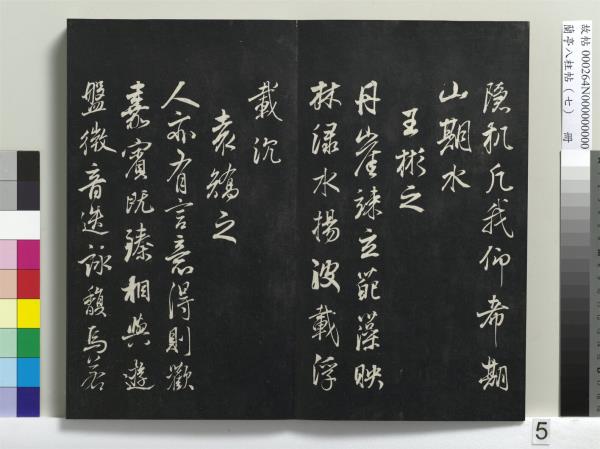 隱机凡我仰希期
山期水
王彬之
丹崖竦立葩藻映
林淥水揚波載浮
載沉
袁嶠之
人亦有言意得則歡
嘉賓既臻相與遊
盤微音迭詠馥焉若
故帖 000264N000000000
蘭亭八柱帖（七） 冊
5